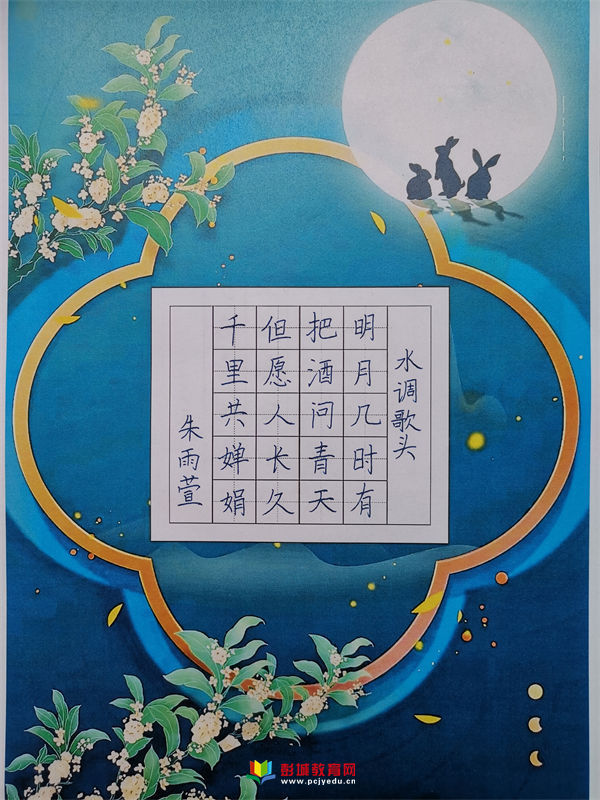 水调歌头
明月几时有
把酒问青天
但愿人长久
千里共婵娟
朱雨萱
彭城教育网
www.pcjyedu.cn